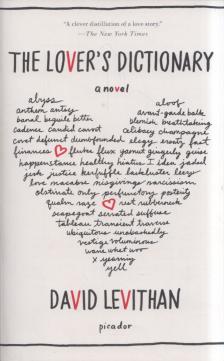 "A clever distillation of a love story."
—The New York Times
THE LOVER'S DICTIONARY
a novel
abyss aloof
anthem antsy avant-garde balk
banal beguile better blemish breathtaking
cadence candid cavort celibacy champagne
covet defunct dumbfounded elegy ersatz fast
finances fluke flux gamut gingerly guise
happenstance healthy hiatus I idea jaded
jerk justice kerfuffle lackluster leery
love macabre misgivings narcissism
obstinate only perfunctory posterity
qualm raze rest rubberneck
scapegoat serrated suffuse
tableau transient travers
ubiquitous unabashedly
vestige voluminous
wane whet woo
x yearning
yell
DAVID LEVITHAN
picador